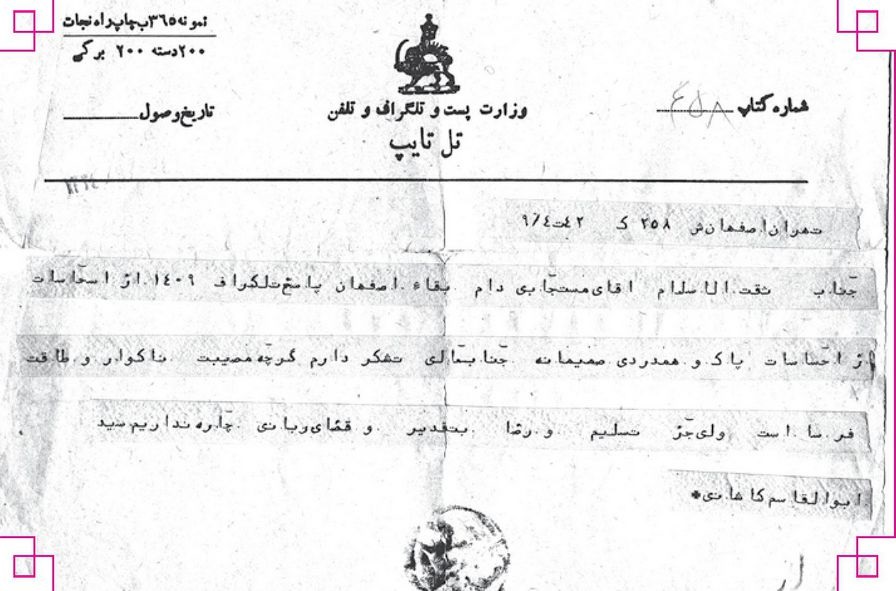 نمونه ۳۶۵ ب چاپ راه نجات
۲۰۰ دسته ۲۰۰ برگی
شماره کتاب ۶۵۸
وزارت پست و تلگراف و تلفن
تاریخ وصول
تل تایپ
تهران اصفهان ش ۲۵۸ ک ۴۲ ت ۹/۴
جناب ثقت الاسلام اقای مستجابی دام بقاء اصفهان پاسخ تلگراف ۱۴۰۹ از اسحاسات
از احساسات پاک و همدردی صمیمانه جنابعالی تشکر دارم گرچه مصیبت ناگوار و طاقت
فرسا است ولی جز تسلیم و رضا بتقدیر و قضای ربانی چاره نداریم سید
ابوالقاسم کاشانی*